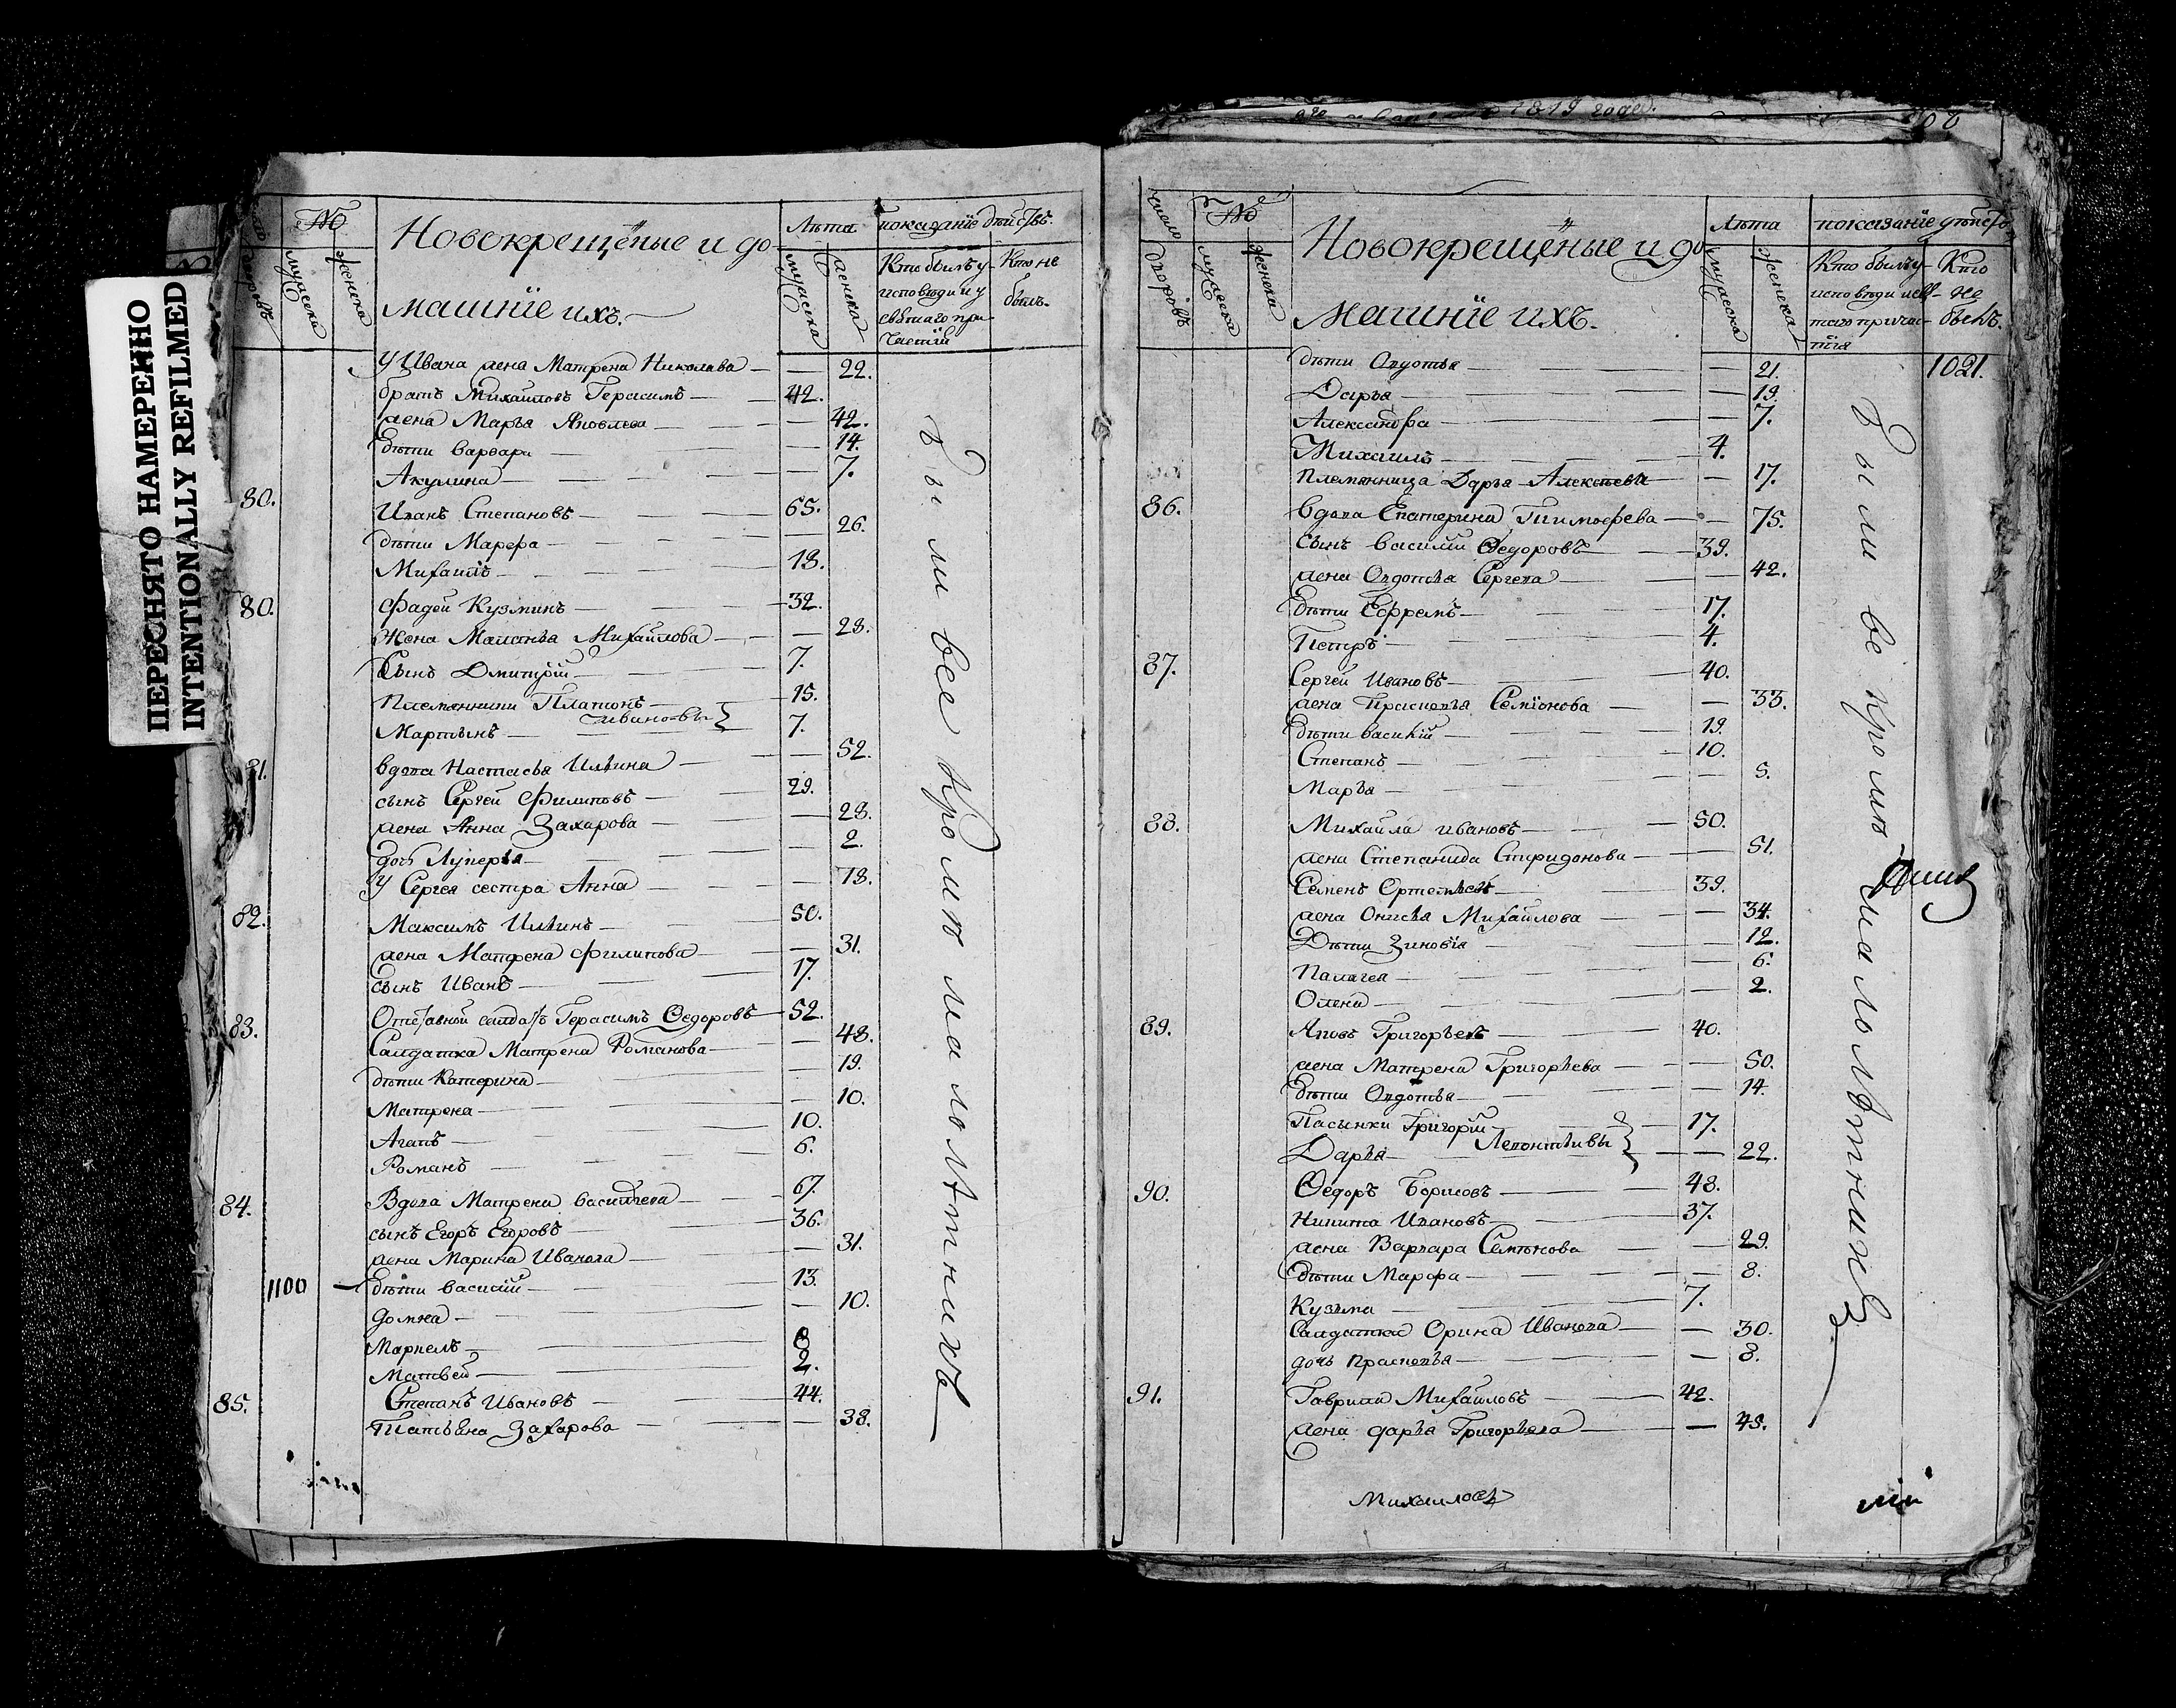 ПЕРЕСНЯТО НАМЕРЕННО
INTENTIONALLY REFILMED
№
мужеска
женска
Новокрещеные и до-
машнїе ихъ.
Лѣта
мужеска
женска
показанїе дѣйствъ.
Кто былъ у
исповѣди и у
святаго при
частїя
Кто не
былъ.
У Ивана жена Матрена Николаева — 22.
братъ Михаиловъ Герасимъ 42.
жена Марья Яковлева — 42.
дѣти варвара — 14.
Акулина — 7.
80. Иванъ Степановъ 65.
дѣти Марфа — 26.
Михаилъ 18.
80. Фадей Кузминъ 32.
Жена Маланья Михайлова — 28.
Сынъ Дмитрїй 7.
Племянники Платонъ 15.
Ивановы
Мартынъ 7.
81. вдова Настасья Ильина — 52.
сынъ Сергей Филиповъ 29.
жена Анна Захарова — 28.
дочь Лукерья — 2.
У Сергея сестра Анна — 18.
82. Максимъ Ильинъ 50.
жена Матрена Филипова — 31.
сынъ Иванъ 17.
83. Отставной салдатъ Герасимъ Ѳедоровъ 52.
Салдатка Матрена Романова — 48.
дѣти Катерина — 19.
Матрена — 10.
Агапъ 10.
Романъ 6.
84. Вдова Матрена василїева 67.
сынъ Егоръ Егоровъ 36.
жена Марина Иванова — 31.
1100 дѣти василїй 13.
домна — 10.
Маркелъ 8
Матвей 2.
85. Степанъ Ивановъ 44.
Татьяна Захарова — 38.
были все кромѣ малолѣтнихъ
1819 года.
число
дворовъ
№
мужеска
женска
Новокрещеные и до
машнїе ихъ.
Лѣта
мужеска
женска
показанїе дѣйствъ
Кто былъ у
исповѣди и свя-
таго причас-
тїя
Кто
не
былъ.
1021.
дѣти Овдотья — 21.
Дарья — 19.
Александра — 7.
Михаилъ 4.
племянница Дарья Алексеева — 17.
86. вдова Екатерина Тимофева — 75.
сынъ василїй Ѳедоровъ 39.
жена Овдотья Сергева — 42.
дѣти Ефремъ 17.
Петръ 4.
87. Сергей Ивановъ 40.
жена Прасковья Семїонова — 33.
дѣти василїй 19.
Степанъ 10.
Марья — 5.
88. Михайла ивановъ 50.
жена Степанида Спиридонова — 51.
Семенъ Ортемьевъ 39.
жена Онисья Михайлова — 34.
Дѣти Зиновїя — 12.
Палагея — 6.
Олена — 2.
89. Яковъ Григорьевъ 40.
жена Матрена Григорьева — 50.
дѣти Овдотья — 14.
Пасынки Григорїй 17.
Леонтьивы
Дарья — 22.
90. Ѳедоръ Борисовъ 48.
Никита Ивановъ 37.
жена Варвара Семїонова — 29.
дѣти Марфа — 8.
Кузьма 7.
Салдатка Орина Иванова — 30.
дочь прасковья — 8.
91. Гаврила Михайловъ 42.
жена дарья Григорьева — 48.
были все кромѣ малолѣтнихъ
Михаиловъ